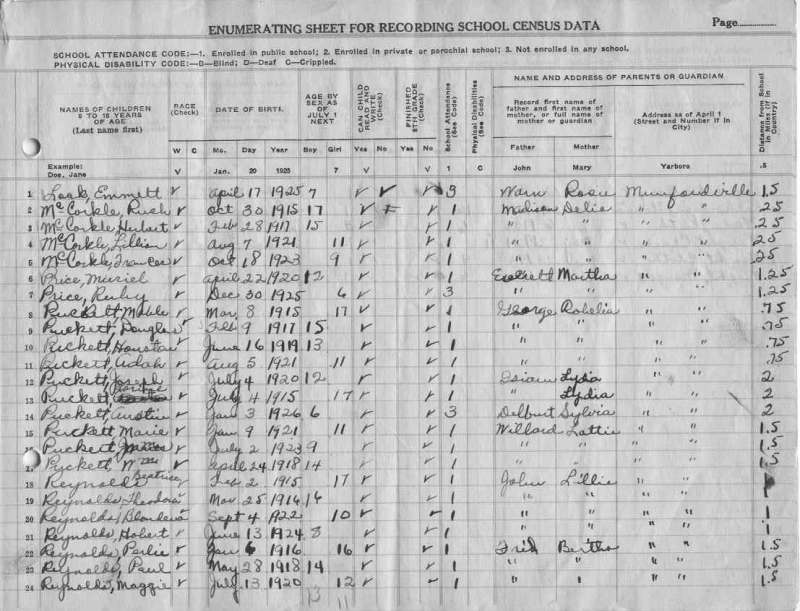 Page
ENUMERATING SHEET FOR RECORDING SCHOOL CENSUS DATA
SCHOOL ATTENDANCE CODE:—1. Enrolled in public school; 2. Enrolled in private or parochial school; 3. Not enrolled in any school.
PHYSICAL DISABILITY CODE:—B—Blind; D—Deaf C—Crippled.
NAMES OF CHILDREN 6 TO 18 YEARS OF AGE (Last name first) RACE (Check) DATE OF BIRTH. AGE BY SEX AS OF JULY 1 NEXT CAN CHILD READ AND WRITE (Check) FINISHED 8TH GRADE (Check) School Attendance (See Code) Physical Disabilities (See Code) NAME AND ADDRESS OF PARENTS OR GUARDIAN Distance from School in Miles (If in Country)
Record first name of father and first name of mother, or full name of mother or guardian Address as of April 1 (Street and Number if in City)
W C Mo. Day Year Boy Girl Yes No Yes No Father Mother
Example: Doe, Jane V Jan. 20 1925 7 V V 1 C John Mary Yarboro .5
1 Emmett April 17 1925 7 3 Rosie Munfordville 1.5
2 McCorkle, Ruel Oct 30 1915 17 1 Madison Delia " " .25
3 McCorkle, Hubart Feb 28 1917 15 1 " " " " .25
4 McCorkle, Lillian Aug 7 1921 11 1 " " " " .25
5 McCorkle, Frances Oct 18 1923 9 1 " " " " .25
6 Price, Muriel April 22 1920 12 1 Everett Martha " " 1.25
7 Price, Ruby Dec 30 1925 6 3 " " " " 1.25
8 Puckett, Mable Mar 8 1915 17 1 George " " .75
9 Puckett, Douglas Feb 9 1917 15 1 " " " " .75
10 Puckett, Houston June 16 1919 13 1 " " " " .75
11 Puckett, Adah Aug 5 1921 11 1 " " " " .75
12 Puckett, Joseph July 4 1920 12 1 Lydia " " 2
13 Puckett, July 4 1915 17 1 " Lydia " " 2
14 Puckett, Austin Jan 3 1926 6 3 Delbert Sylvia " " 2
15 Puckett, Marie Jan 9 1921 11 1 Willard Lattie " " 1.5
Puckett, James July 2 1923 9 1 " " " " 1.5
Puckett, Wm April 24 1918 14 1 " " " " 1.5
18 Reynolds, Beatrice Feb 2 1915 17 1 John Lillie " " 1
19 Reynolds, Theodore Mar 25 1916 16 1 " " " " 1
20 Reynolds, Sept 4 1922 10 1 " " " " 1
21 Reynolds, Hobert June 13 1924 8 1 " " " " 1
22 Reynolds, Perlie Jan 6 1916 16 1 Fred Bertha " " 1.5
23 Reynolds, Paul May 28 1918 14 1 " " " " 1.5
24 Reynolds, Maggie July 13 1920 12 1 " " " " 1.5
13 11